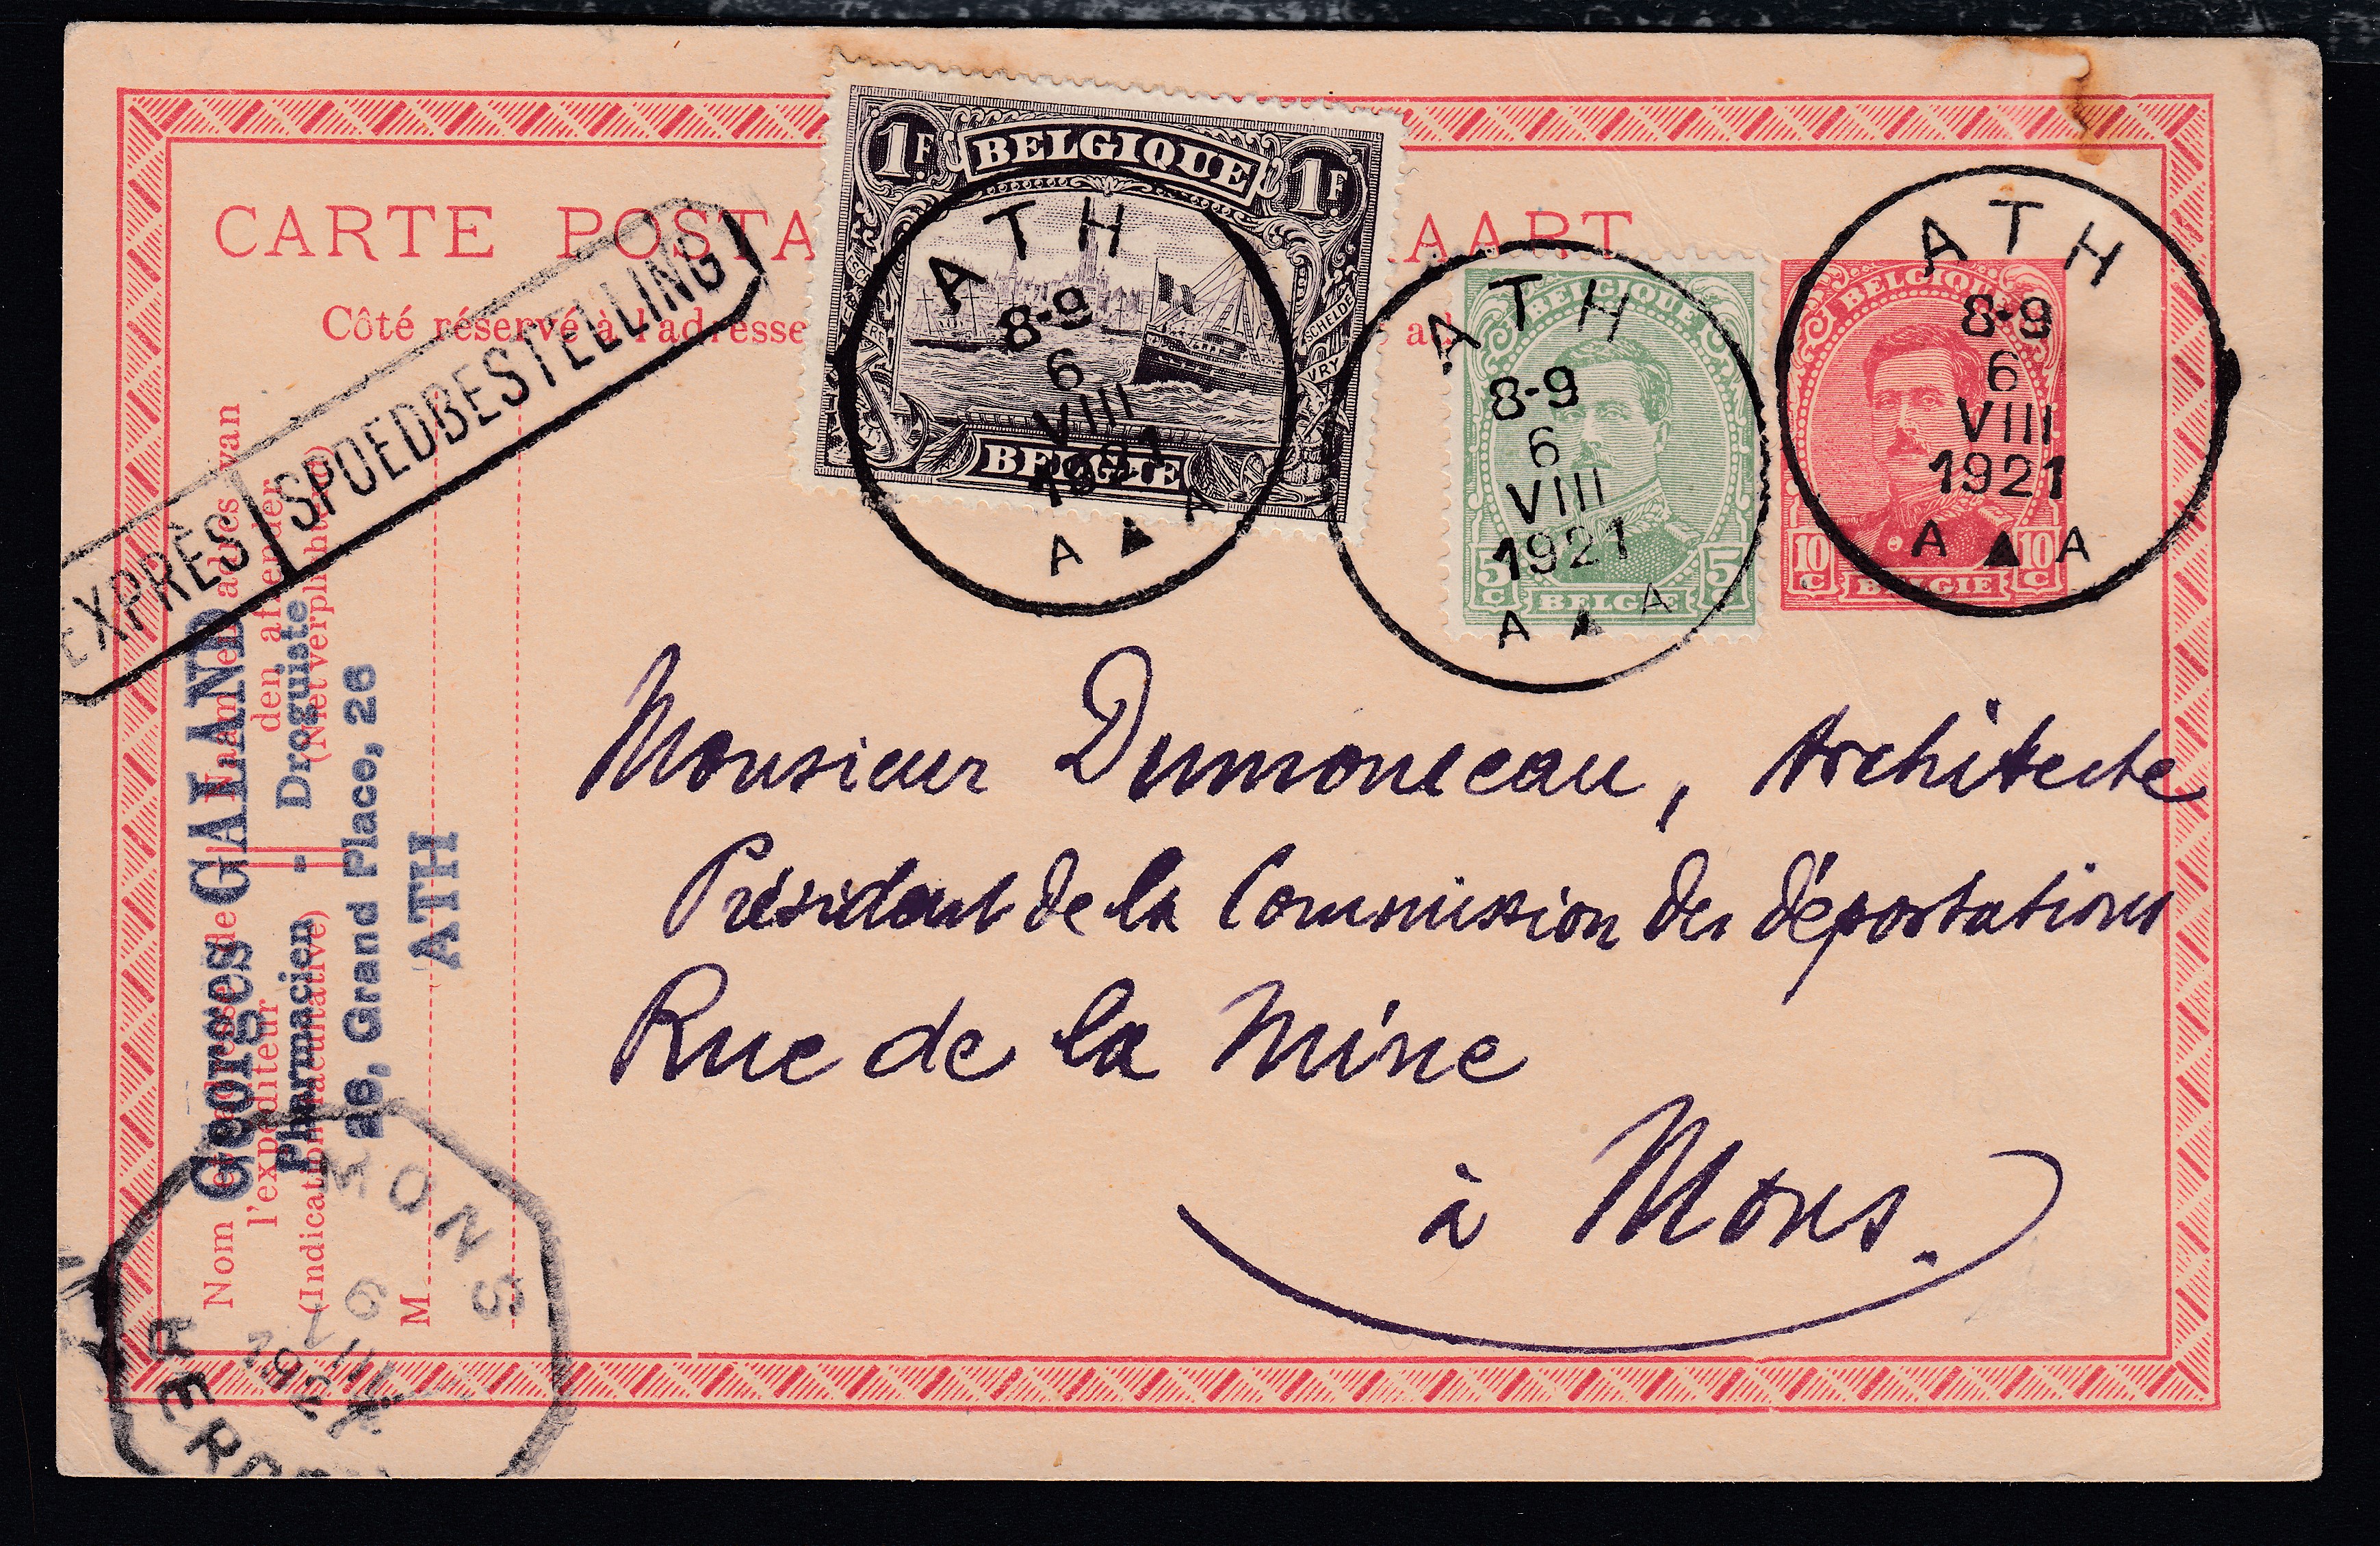 CARTE POSTA
AART
Côté réservé à l'adresse
ad
EXPRÈS SPOEDBESTELLING
1F. BELGIQUE 1F.
SCHELDE
VRY
BELGIË
ATH
8-9
6
VIII
1921
A A
BELGIQUE
5 C BELGIË 5 C
ATH
8-9
6
VIII
1921
A A
BELGIQUE
10 C BELGIE 10 C
ATH
8-9
6
VIII
1921
A A
Monsieur Dumonceau, Architecte
Président de la Commission des déportations
Rue de la Mine
à Mons.
Georges GALAND
Pharmacien - Droguiste
26, Grand Place, 26
ATH
Nom et adresse de
l'expéditeur
(Indication facultative)
Naam en adres van
den afzender
(Niet verplichtend)
M
MONS